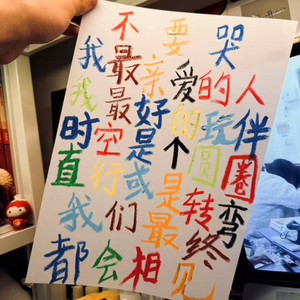 不要哭
我最亲爱的人
我最好的玩伴
时空是个圆圈
直行或是转弯
我们最终
都会相见